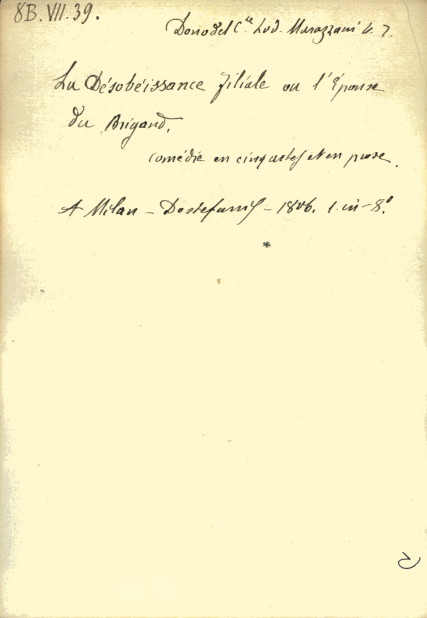 8B. VII. 39.
Dono del C.te Lod. Marazzani V. 7.
La Désobéissance filiale ou l'Epouse
du Brigand.
comédie en cinq actes et en prose.
A Milan - Destefanis - 1806. 1. in-8°.
*